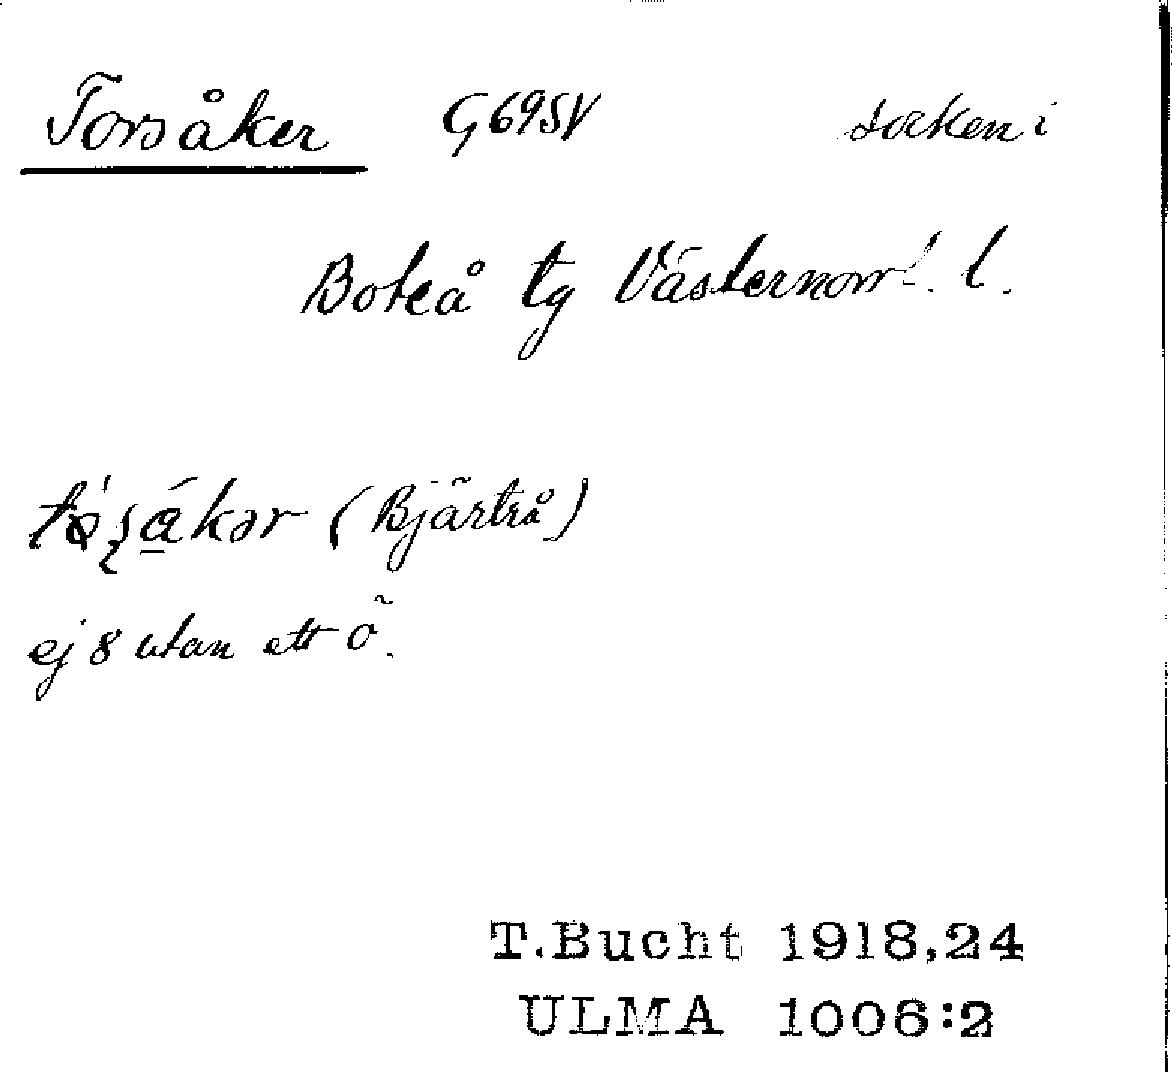 Torsåker G69SV socken i
Boteå tg Västernorrl. l.
(Bjärtrå)
ej 8 utan ett õ.
T.Bucht 1918,24
ULMA 1006:2